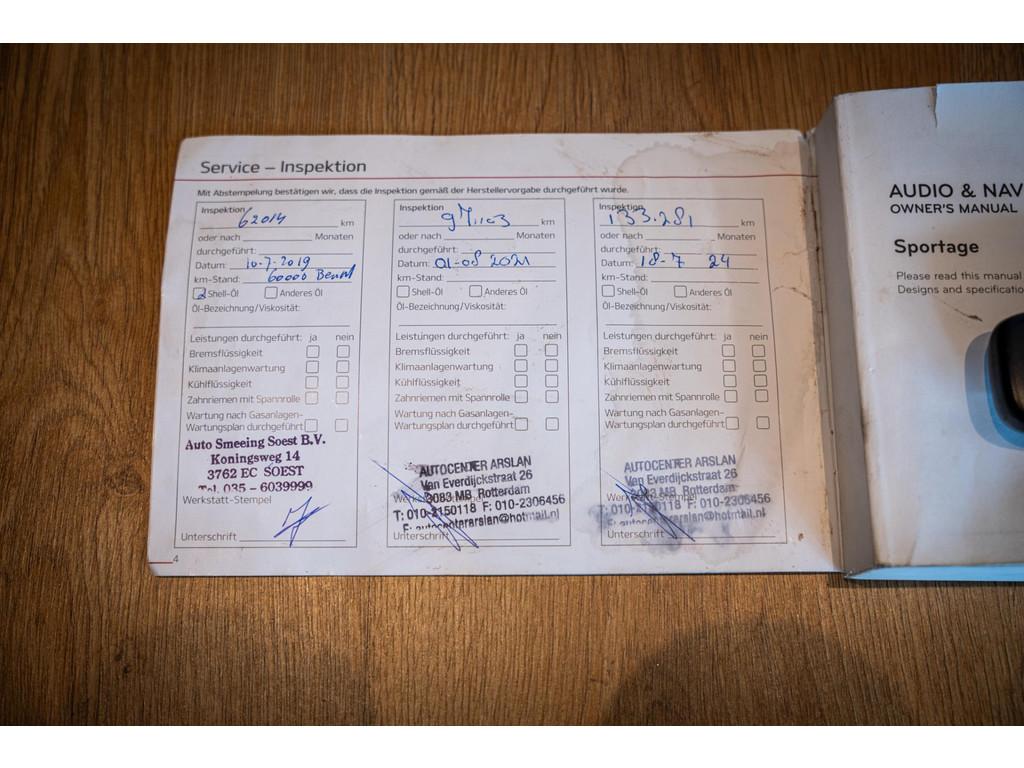 Service – Inspektion
Mit Abstempelung bestätigen wir, dass die Inspektion gemäß der Herstellervorgabe durchgeführt wurde.
Inspektion 62014 km
oder nach Monaten
durchgeführt:
Datum: 10-7-2019
km-Stand: 60000 Beurt
Shell-Öl Anderes Öl
Öl-Bezeichnung/Viskosität:
Leistungen durchgeführt: ja nein
Bremsflüssigkeit
Klimaanlagenwartung
Kühlflüssigkeit
Zahnriemen mit Spannrolle
Wartung nach Gasanlagen-
Wartungsplan durchgeführt
Auto Smeeing Soest B.V.
Koningsweg 14
3762 EC SOEST
Tel. 035 – 6039999
Werkstatt-Stempel
Unterschrift
4
Inspektion km
oder nach Monaten
durchgeführt:
Datum: 01-08 2021
km-Stand:
Shell-Öl Anderes Öl
Öl-Bezeichnung/Viskosität:
Leistungen durchgeführt: ja nein
Bremsflüssigkeit
Klimaanlagenwartung
Kühlflüssigkeit
Zahnriemen mit Spannrolle
Wartung nach Gasanlagen-
Wartungsplan durchgeführt
AUTOCENTER ARSLAN
Van Everdijckstraat 26
3083 MB Rotterdam
T: 010-2150118 F: 010-2306456
Unterschrift
Inspektion 133.281 km
oder nach Monaten
durchgeführt:
Datum: 18-7 24
km-Stand:
Shell-Öl Anderes Öl
Öl-Bezeichnung/Viskosität:
Leistungen durchgeführt: ja nein
Bremsflüssigkeit
Klimaanlagenwartung
Kühlflüssigkeit
Zahnriemen mit Spannrolle
Wartung nach Gasanlagen-
Wartungsplan durchgeführt
AUTOCENTER ARSLAN
Van Everdijckstraat 26
MB Rotterdam
T: 010-2150118 F: 010-2306456
Unterschrift
AUDIO & NAV
OWNER'S MANUAL
Sportage
Please read this manual
Designs and specificatio